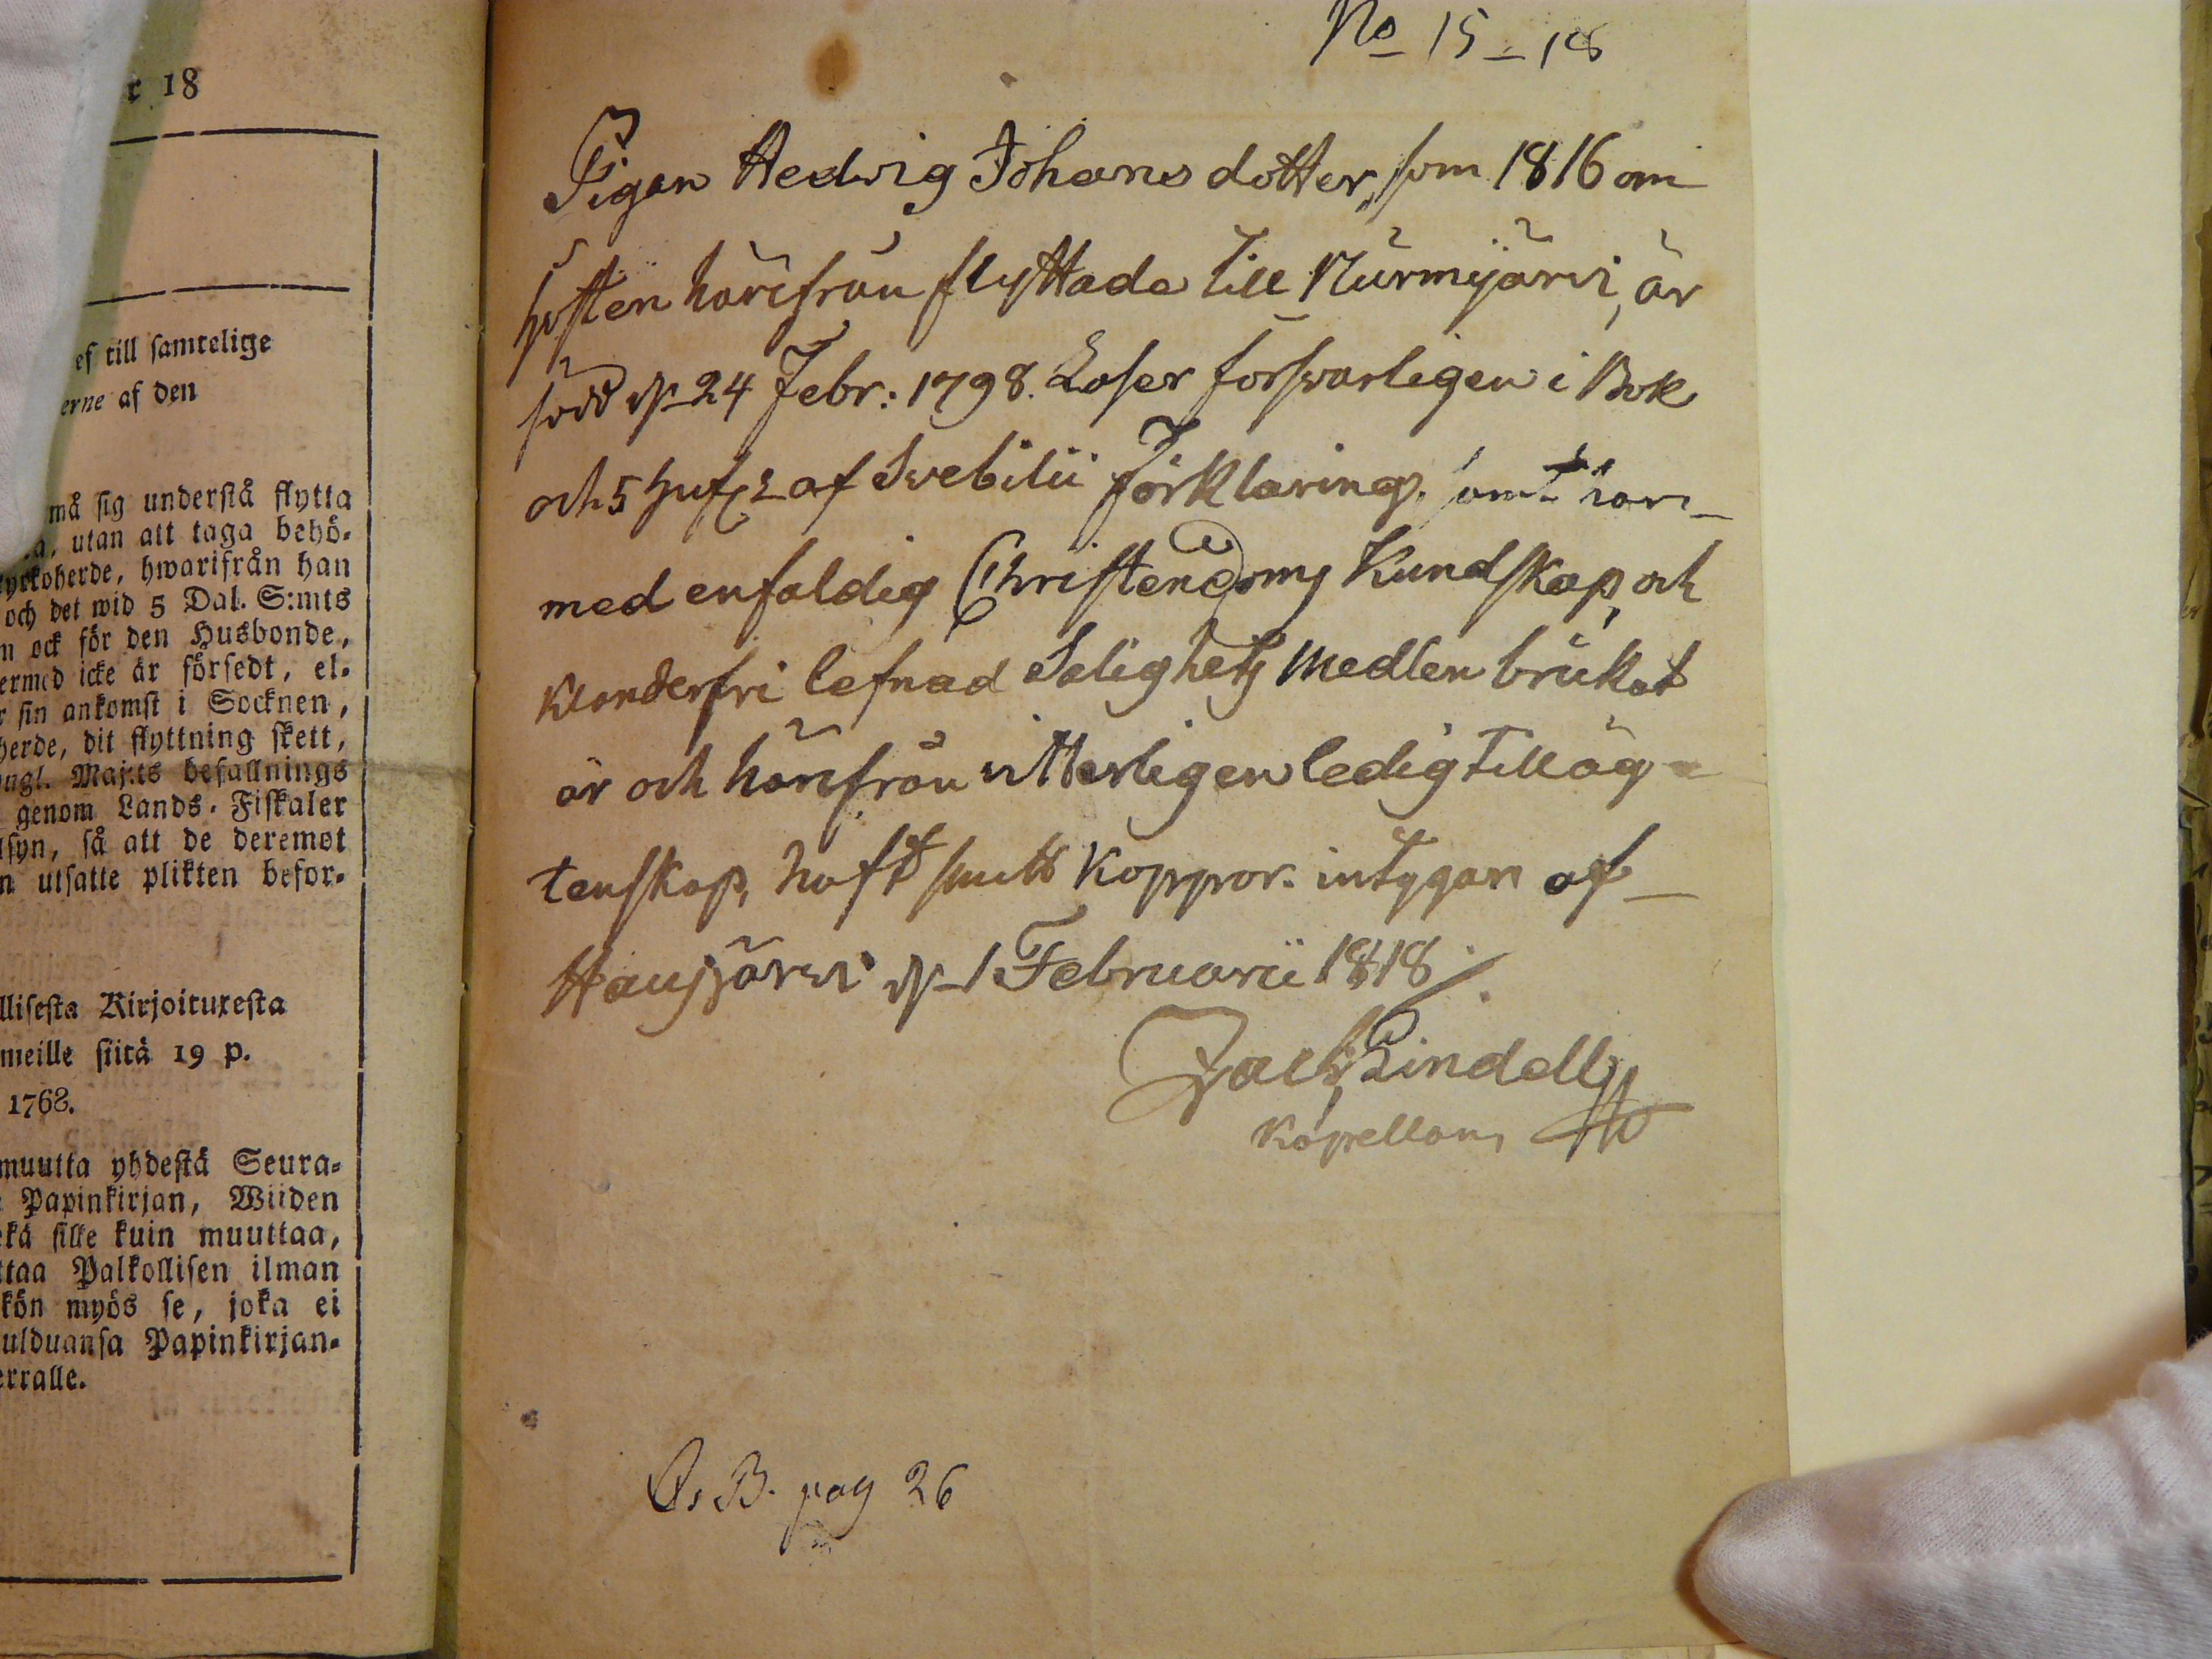 r 18
ef till samtelige
erne af den
må sig understå flytta
a, utan att taga behö-
yrkoherde, hwarifrån han
och det wid 5 Dal. S:mts
n ock för den Husbonde,
ermed icke är försedt, el-
r sin ankomst i Socknen,
herde, dit flyttning skett,
ngl. Maj:ts befallnings
genom Lands-Fiskaler
lsyn, så att de deremot
n utsatte plikten befor-
llisesta Kirjoituxesta
meille siitä 19 p.
1768.
muutta yhdestä Seura-
Papinkirjan, Wiiden
ekä sille kuin muuttaa,
ttaa Palkollisen ilman
kön myös se, joka ei
ulduansa Papinkirjan-
erralle.
No 15_18
Pigan Hedvig Johans dotter, som 1816 om
hösten härifrån flyttade till Nurmijärvi, är
född d. 24 Febr: 1798. Läser försvarligen i Bok
och 5 Huf. af Svebilii Förklaring, samt har
med enfaldig Christendoms Kundskap, och
klanderfri lefnad Salighets Medlen brukat
är och härifrån vitterligen ledig till äg-
tenskap, haft smitt koppor. intygar af
Hausjärvi d. 1 Februarii 1818.
Zach. Lindell
Kapellan,
C. B. pag 26